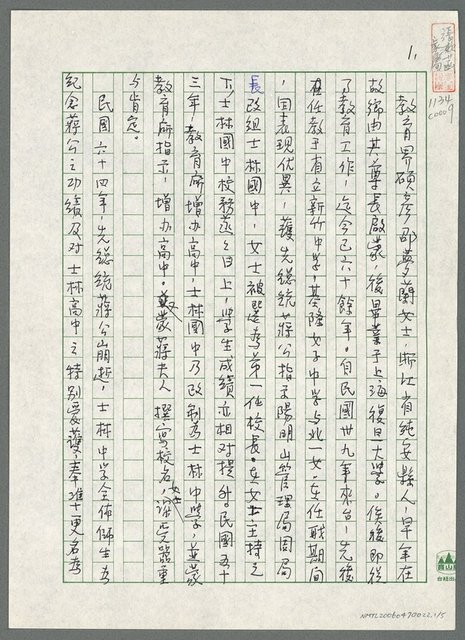 1.
教育界碩彥邵夢蘭女士，浙江省純安縣人，早年在
故鄉由其尊長啟蒙，後畢業于上海復旦大學。俟後即從
了教育工作，迄今已六十餘年。自民國卅八年來台，先後
在任教于省立新竹中學，基隆女子中學与北一女。在任職期间
，因表現优異，獲先總統蔣公指示陽明山管理局周局
長改組士林國中，女士被選為第一任校長。在女士主持之
下，士林國中校務蒸蒸日上，學生成績亦相對提升。民國五十
三年，教育廳增办高中，士林國中乃改制為士林中學，並蒙
教育廳指示，增办高中。並蒙蔣夫人撰寫校名，深受器重
女士
与肯定。
民國六十四年，先總統蔣公崩逝，士林中學全体師生為
紀念蔣公之功績及对士林高中之特别愛護，奉准更名為
1134
C0007
NMTL20060470022 1/5